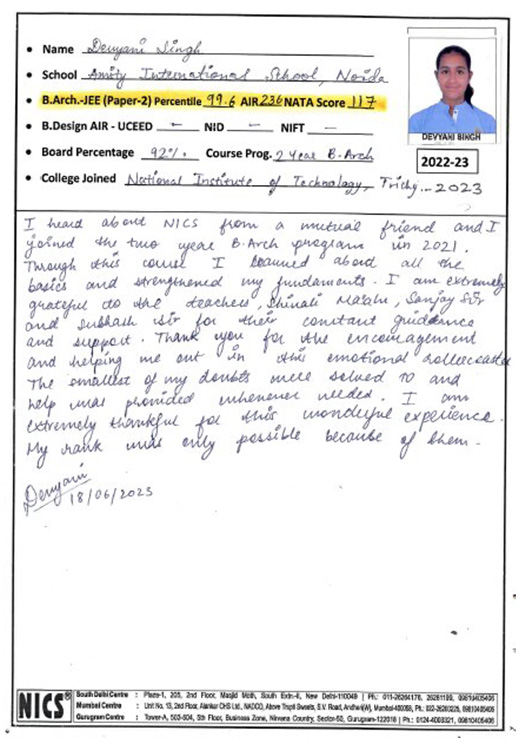 • Name Devyani Singh
• School Amity International School, Noida
• B.Arch.-JEE (Paper-2) Percentile 99.6 AIR 236 NATA Score 117
• B.Design AIR - UCEED — NID — NIFT —
• Board Percentage 92%. Course Prog. 2 Year B.Arch
• College Joined National Institute of Technology, Trichy - 2023
DEVYANI SINGH
2022-23
I heard about NICS from a mutual friend and I
joined the two year B.Arch program in 2021.
Through this course I learned about all the
basics and strengthened my fundaments. I am extremely
grateful to the teachers, Shivali Ma'am, Sanjay Sir
and Subhash sir for their constant guidance
and support. Thank you for the encouragement
and helping me out in this emotional rollercoaster
The smallest of my doubts were solved to and
help was provided whenever needed. I am
extremely thankful for this wonderful experience.
My rank was only possible because of them.
Devyani
18/06/2023
NICS®
South Delhi Centre : Plaza-1, 205, 2nd Floor, Masjid Moth, South Extn.-II, New Delhi-110049 | Ph.: 011-26264176, 26261199, 09810405406
Mumbai Centre : Unit No. 13, 2nd Floor, Alankar CHS Ltd., NADCO, Above Trupti Sweets, S.V. Road, Andheri(W), Mumbai-400058, Ph.: 022-26200225, 09810405406
Gurugram Centre : Tower-A, 503-504, 5th Floor, Business Zone, Nirvana Country, Sector-50, Gurugram-122018 | Ph.: 0124-4003321, 09810405406